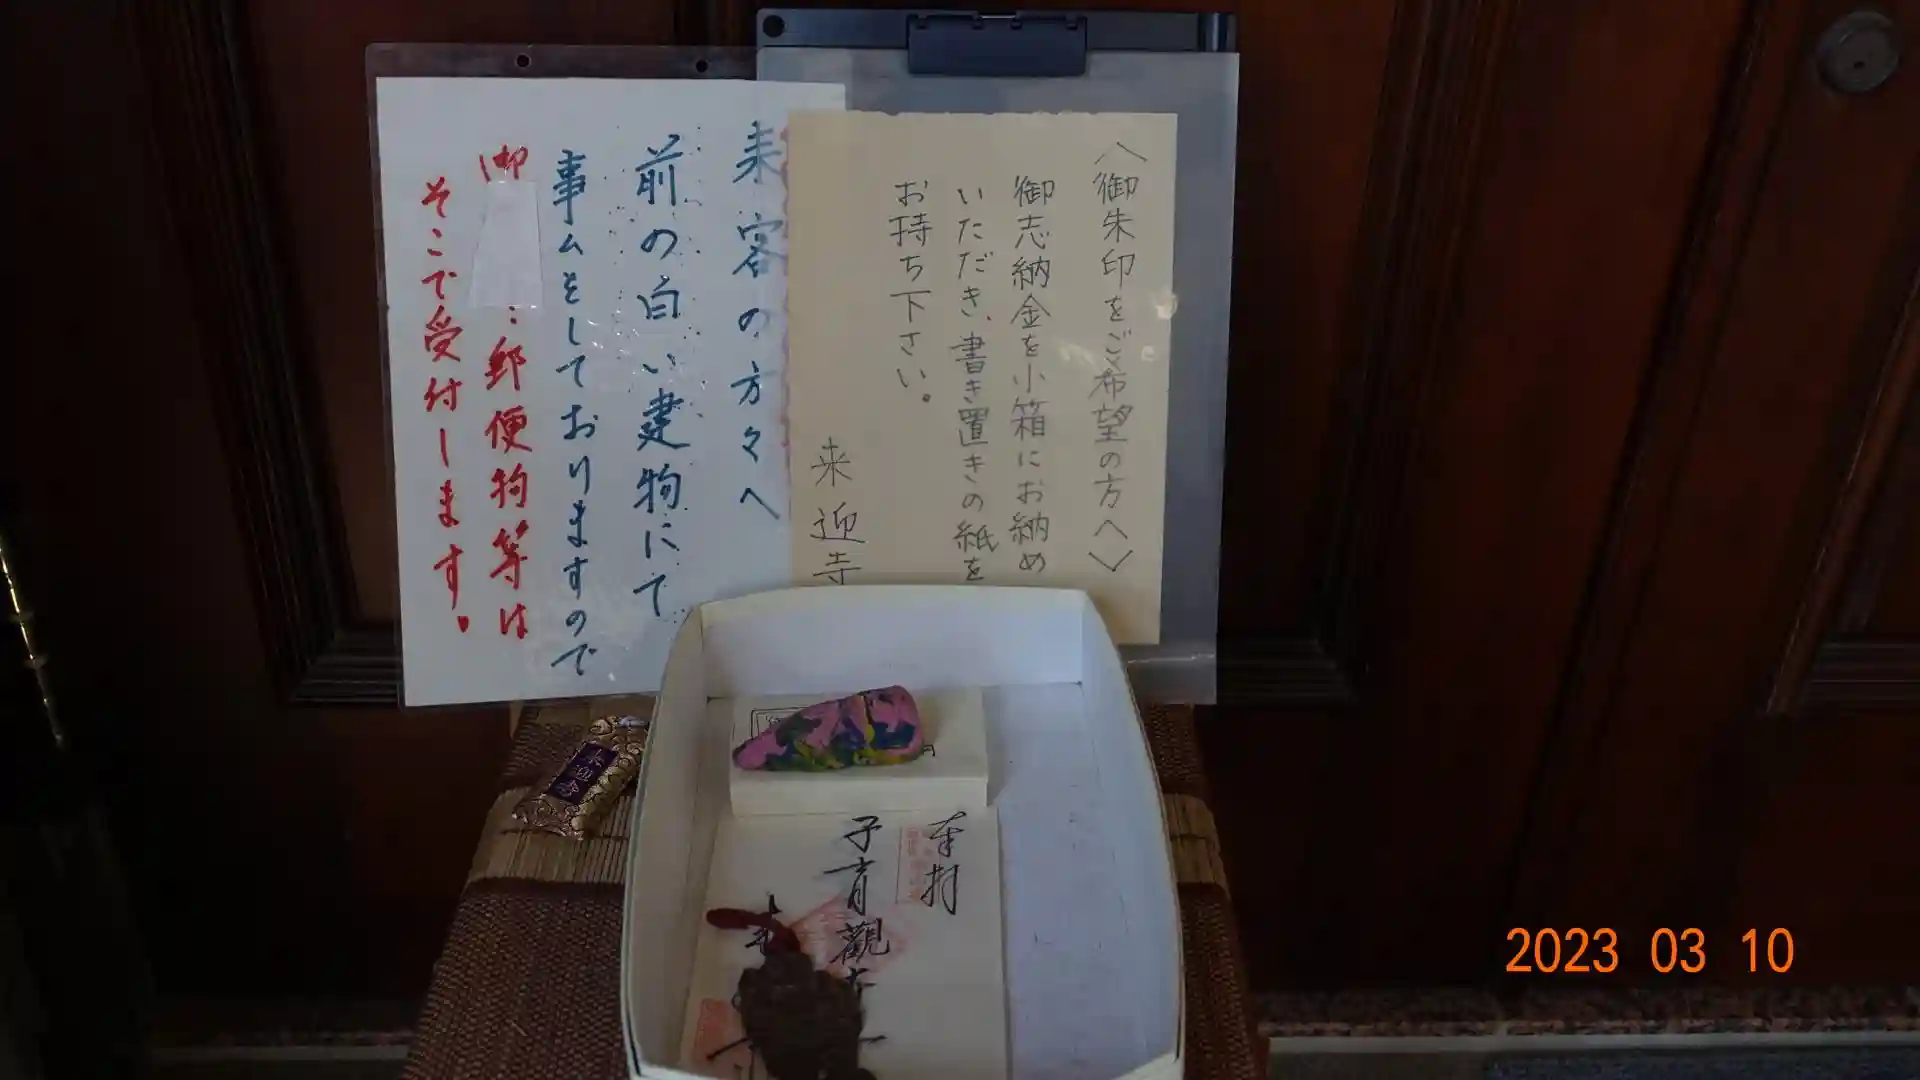 〈御朱印をご希望の方へ〉
御志納金を小箱にお納め
いただき、書き置きの紙を
お持ち下さい。
来迎寺
来客の方々へ
前の白い建物にて
事ムをしておりますので
御
:郵便物等は
そこで受付します。
来迎寺
奉拝
子育觀
2023 03 10